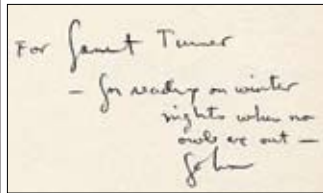 For Janet Turner
– for reading on winter
nights when no
owls are out –
John